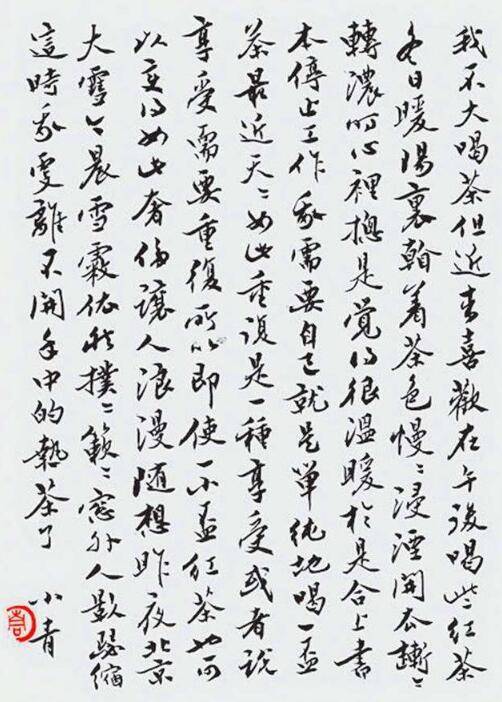 我不大喝茶但近来喜歡在午後喝些紅茶
冬日暖陽裏着茶色慢々浸湮開去漸々
轉濃心裡總是覺得很溫暖於是合上書
本停止工作我需要自己就是單純地喝一盃
茶最近天々如此重複是一種享受或者說
享受需要重復所以即使一小盃紅茶也可
以變得如此奢侈讓人浪漫随想昨夜北京
大雪今晨雪霰依然撲々簌々窗外人影瑟縮
這時我更離不開手中的熱茶了 小青